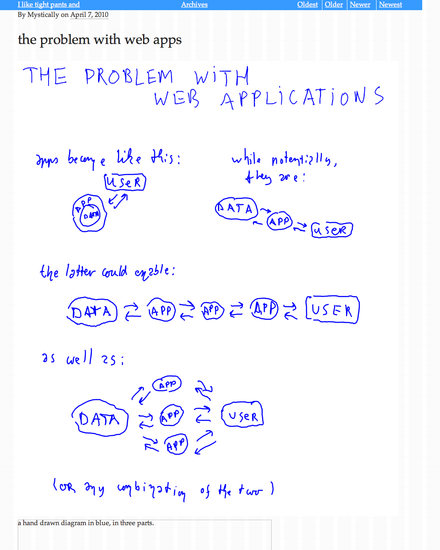 I like tight pants and Archives Oldest Older Newer Newest
By Mystically on April 7, 2010
the problem with web apps
THE PROBLEM WITH
WEB APPLICATIONS
apps become like this:
while potentially,
they are:
USER
APP
DATA
DATA APP USER
the latter could enable:
DATA APP APP APP USER
as well as:
APP
DATA APP USER
APP
(or any combination of the two)
a hand drawn diagram in blue, in three parts.